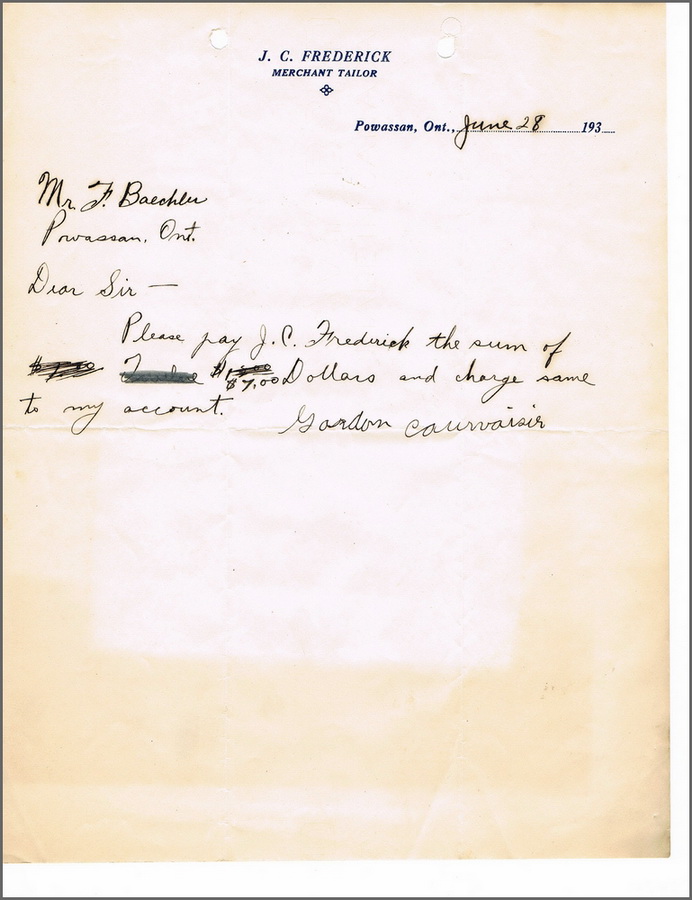 J. C. FREDERICK
MERCHANT TAILOR
Powassan, Ont., June 28 193
Mr. F. Baechler
Powassan, Ont.
Dear Sir —
Please pay J. C. Frederick the sum of
$7.00 Dollars and charge same
to my account.
Gordon Courvoisier